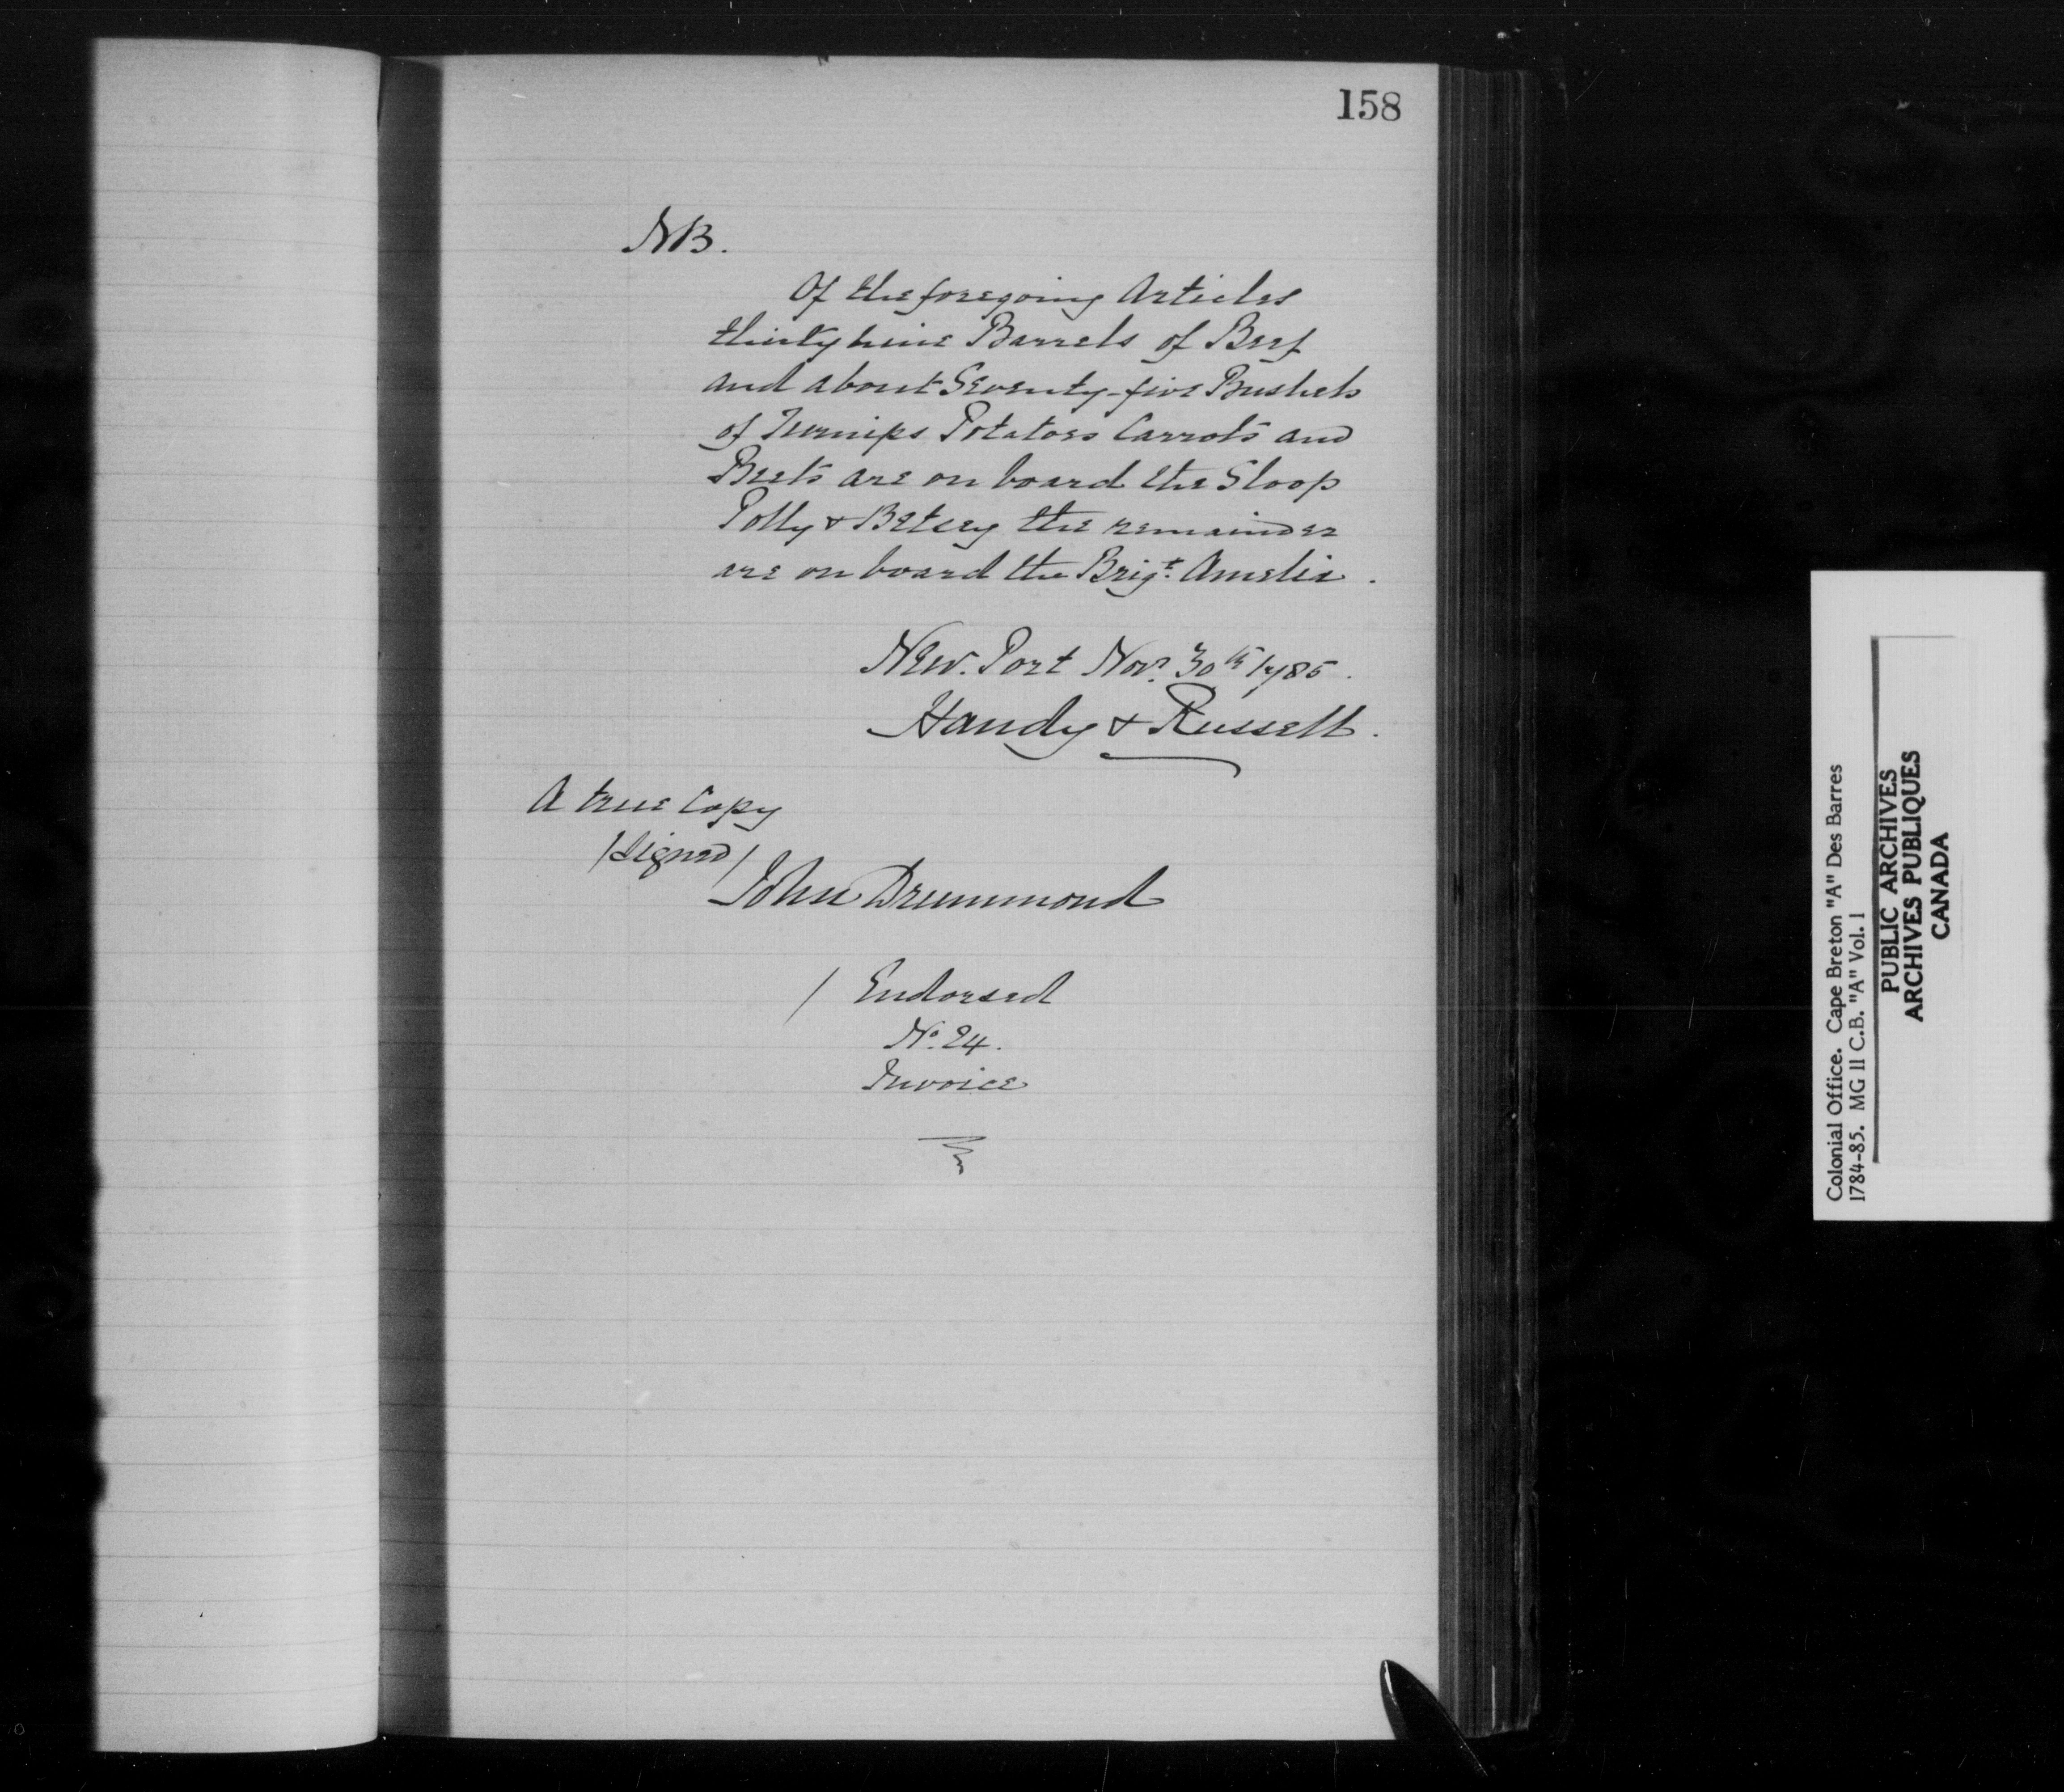 158
NB.
Of the foregoing Articles
thirty nine Barrels of Beef
and about Seventy-five Bushels
of Turnips Potatoes Carrots and
Beets are on board the Sloop
Polly & Betsey the remainder
are on board the Brigt. Amelia.
New. Port Novr. 30th 1785.
Handy & Russell.
A true Copy
/Signed/
John Drummond
/ Endorsed
No. 24.
Invoice
Colonial Office. Cape Breton "A" Des Barres
1784-85. MG 11 C.B. "A" Vol. 1
PUBLIC ARCHIVES
ARCHIVES PUBLIQUES
CANADA